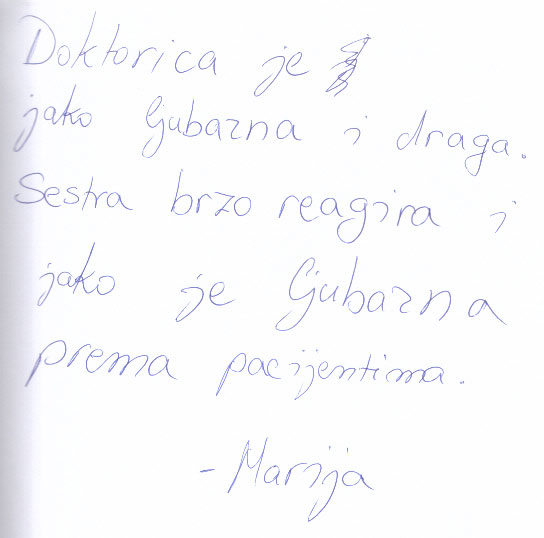 Doktorica je
jako ljubazna i draga.
Sestra brzo reagira i
jako je ljubazna
prema pacijentima.
- Marija